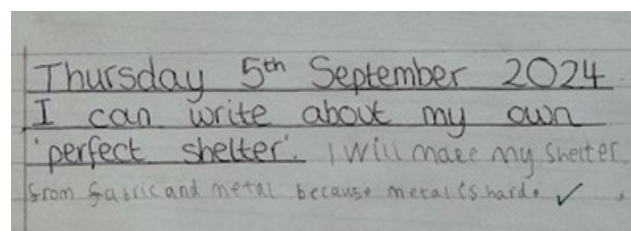 Thursday 5th September 2024
I can write about my own
'perfect shelter'. I will make my shelter
from fabric and metal because metal is hard.